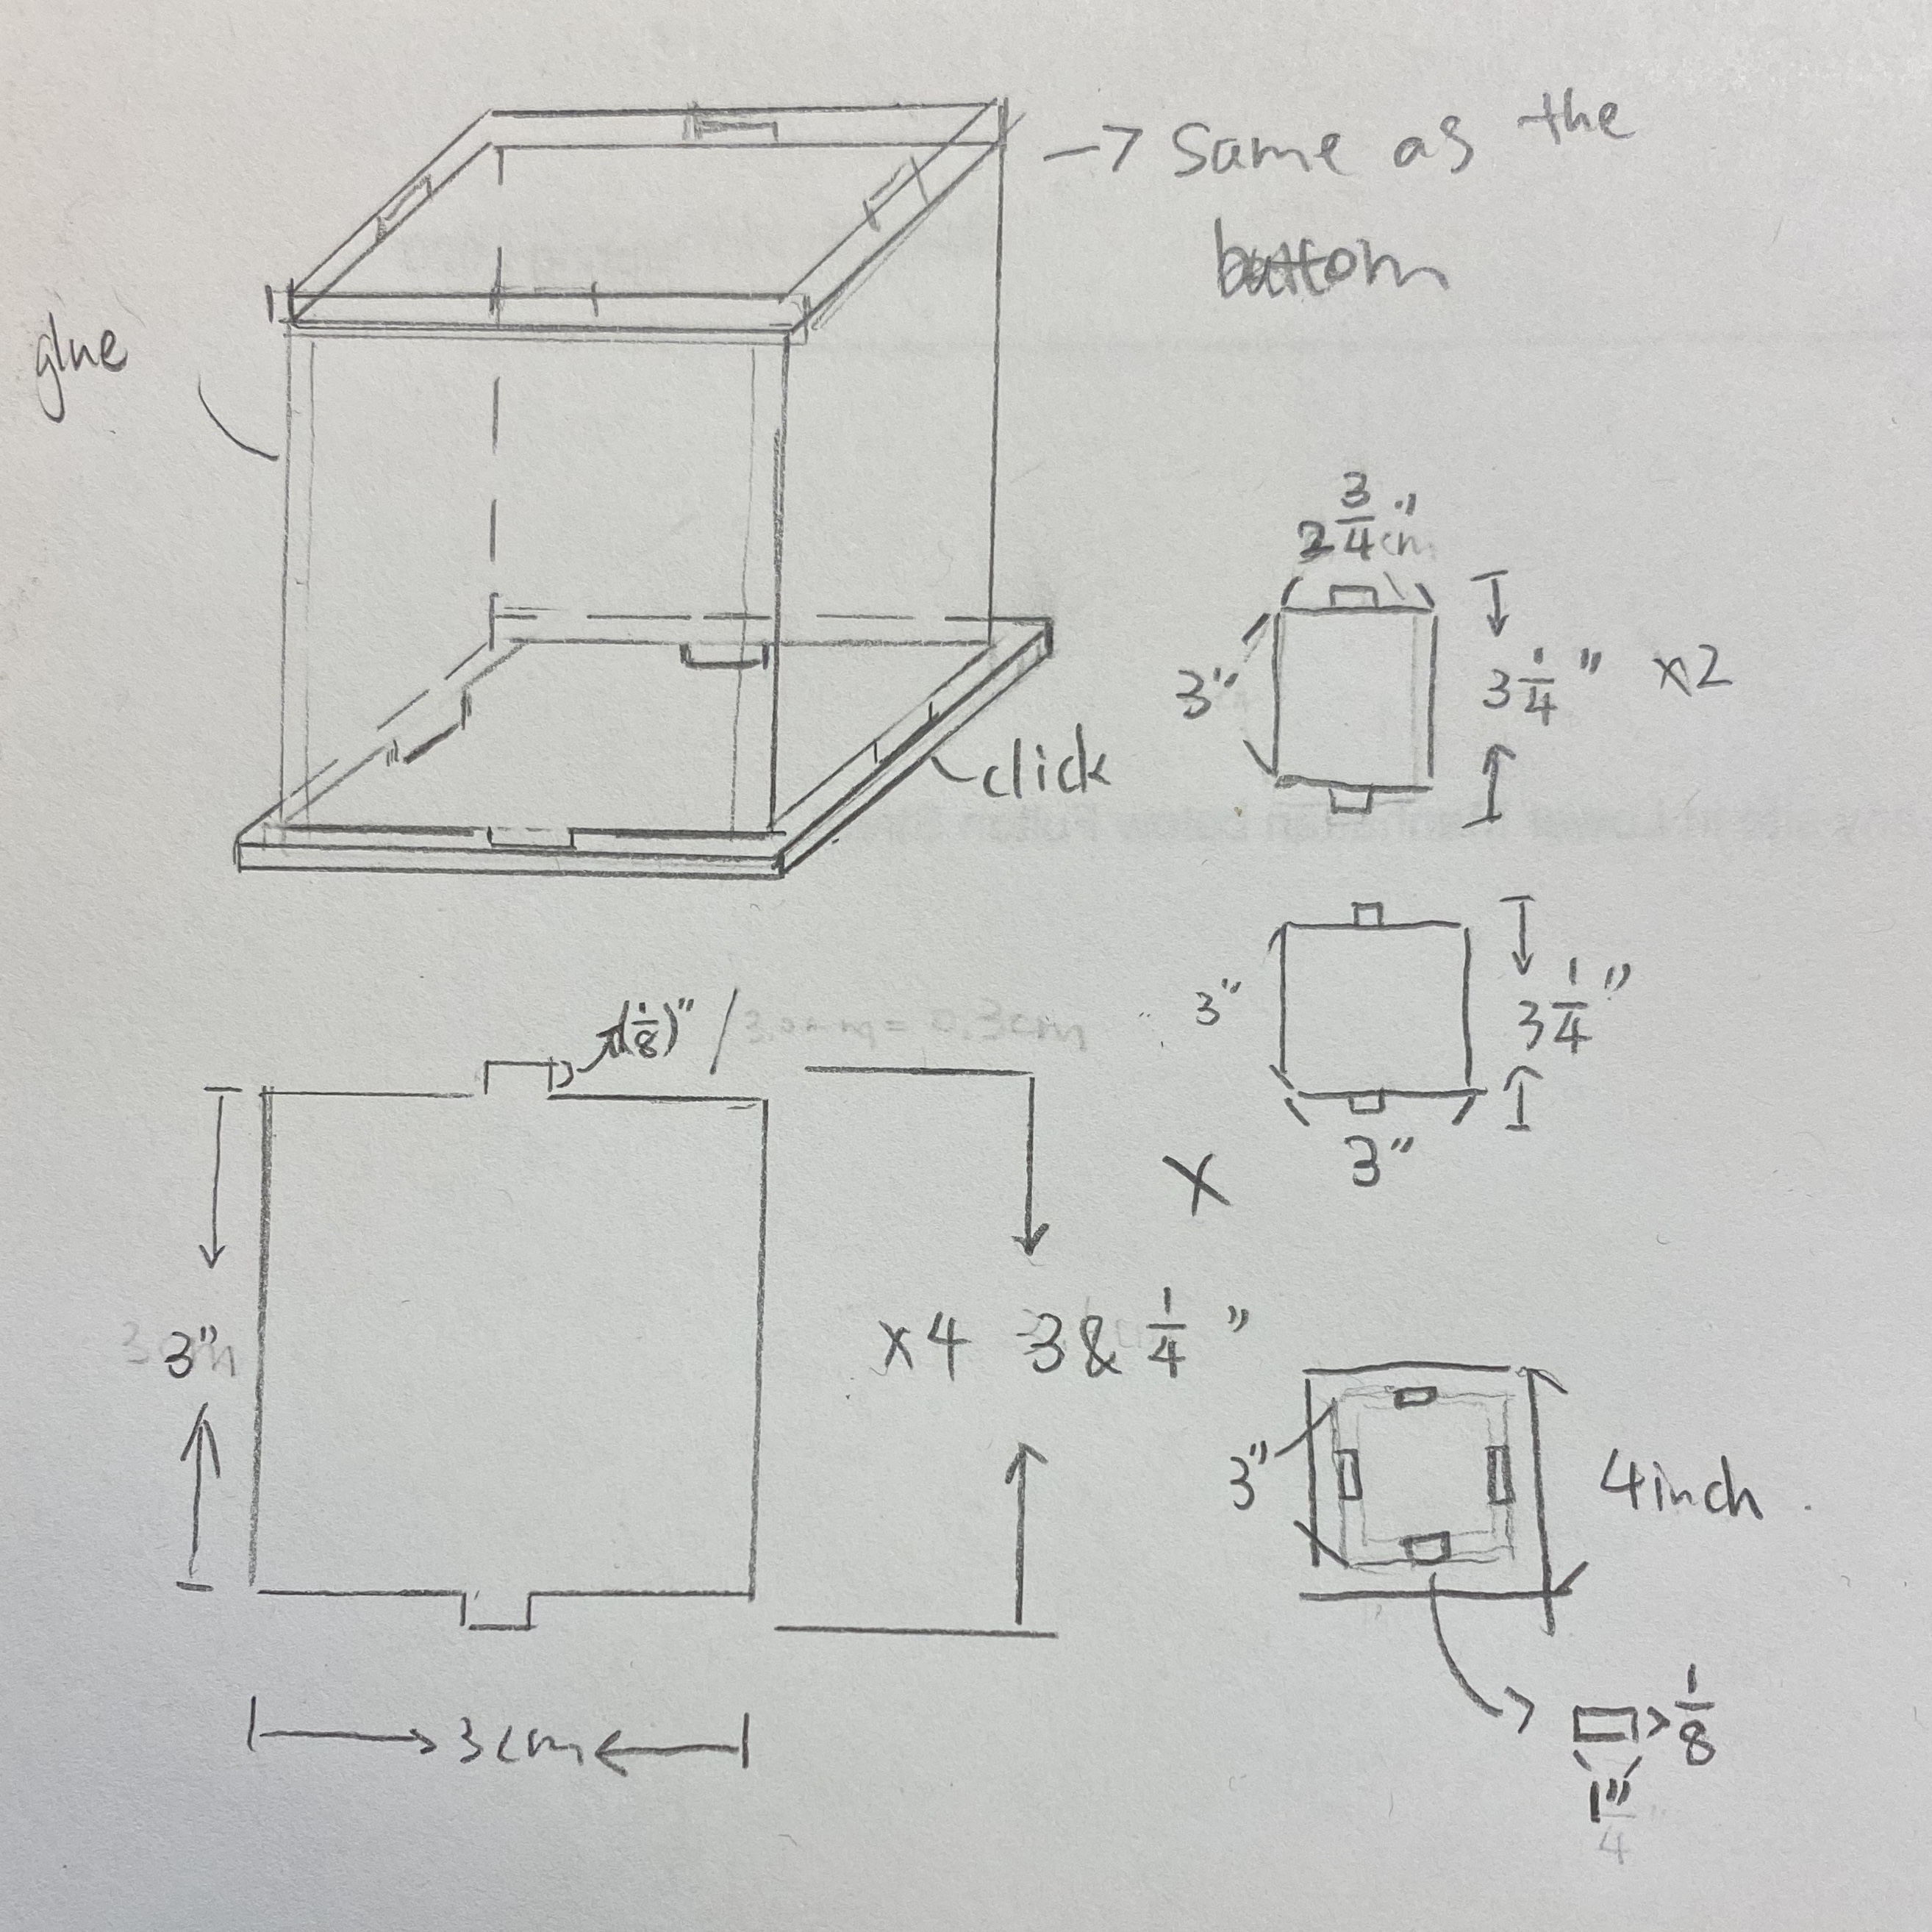 → Same as the
bottom
glue
click
2 3/4"
3"
3 1/4" x2
3"
3 1/4"
3"
x
(1/8)" / 3.0mm = 0.3cm
3"
x4 3 & 1/4"
3cm
3"
4 inch
1/8
1"